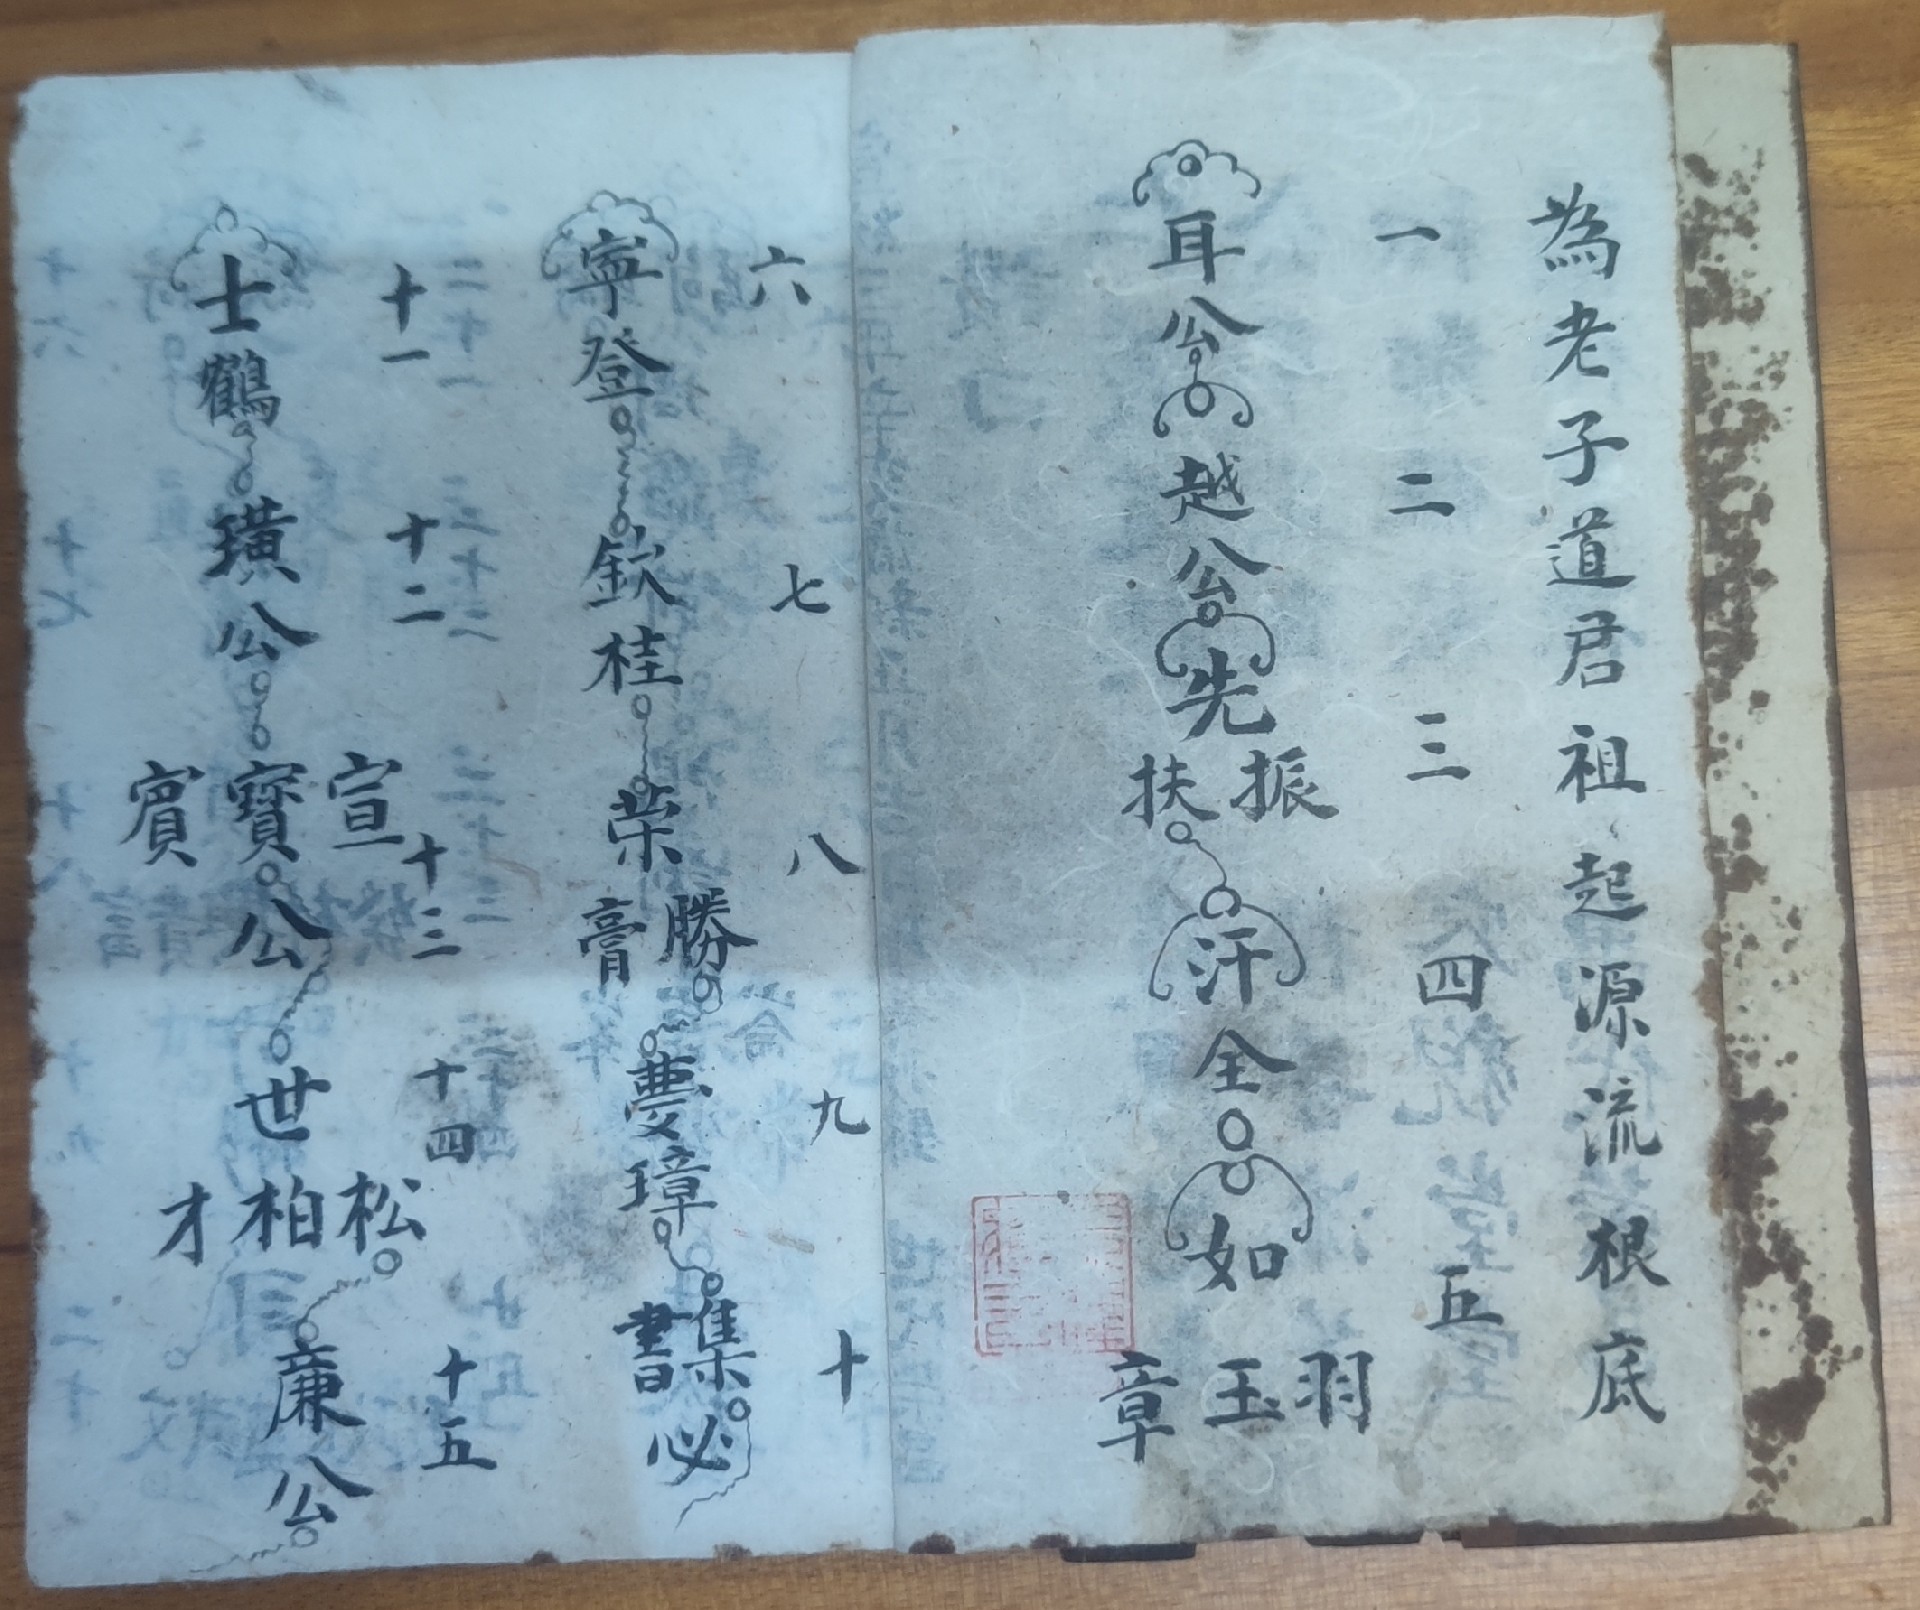 為老子道君祖起源流根底
一 二 三 四 五
耳公 越公 先 振 扶 汗全 如 羽 玉 章
六 七 八 九 十
寧登 欽桂 荣 勝 膏 夢璋 集 書 必
十一 十二 十三 十四 十五
士鶴 璜公 宣 寶 賔 公 世 松 柏 才 廉公